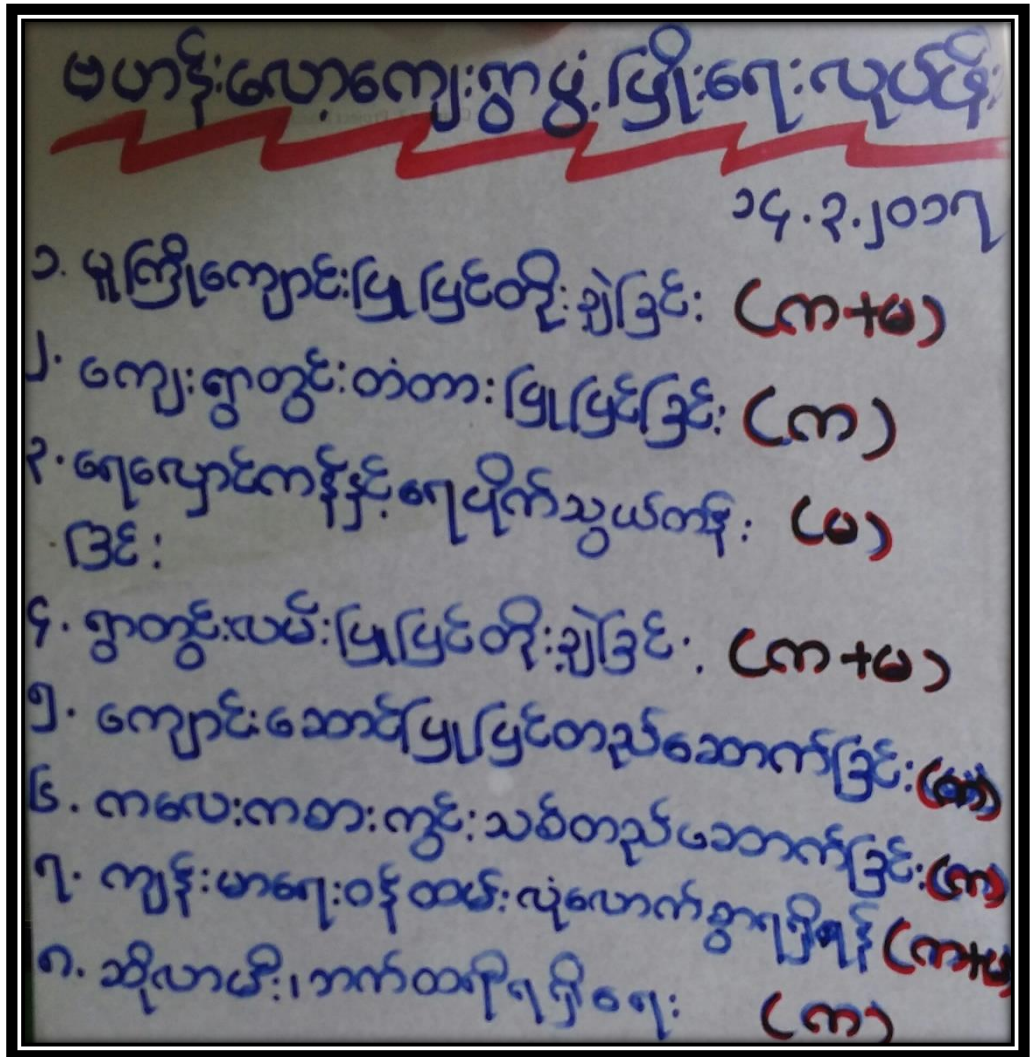 ဗဟန်းလော့ကျေးရွာဖွံ့ဖြိုးရေးလုပ်ငန်း
၁၄.၃.၂၀၁၇
၁. မူကြိုကျောင်းပြုပြင်တိုးချဲ့ခြင်း (က+မ)
၂. ကျေးရွာတွင်းတံတားပြုပြင်ခြင်း (က)
၃. ရေလှောင်ကန်နှင့်ရေပိုက်သွယ်တန်း (မ)
ခြင်း
၄. ရွာတွင်းလမ်းပြုပြင်တိုးချဲ့ခြင်း (က+မ)
၅. ကျောင်းဆောင်ပြုပြင်တည်ဆောက်ခြင်း (က)
၆. ကလေးကစားကွင်းသစ်တည်ဆောက်ခြင်း (က)
၇. ကျန်းမာရေးဝန်ထမ်းလုံလောက်စွာရရှိရန် (က+မ)
၈. ဆိုလာမီး၊ဘက်ထရီရရှိရေး (က)